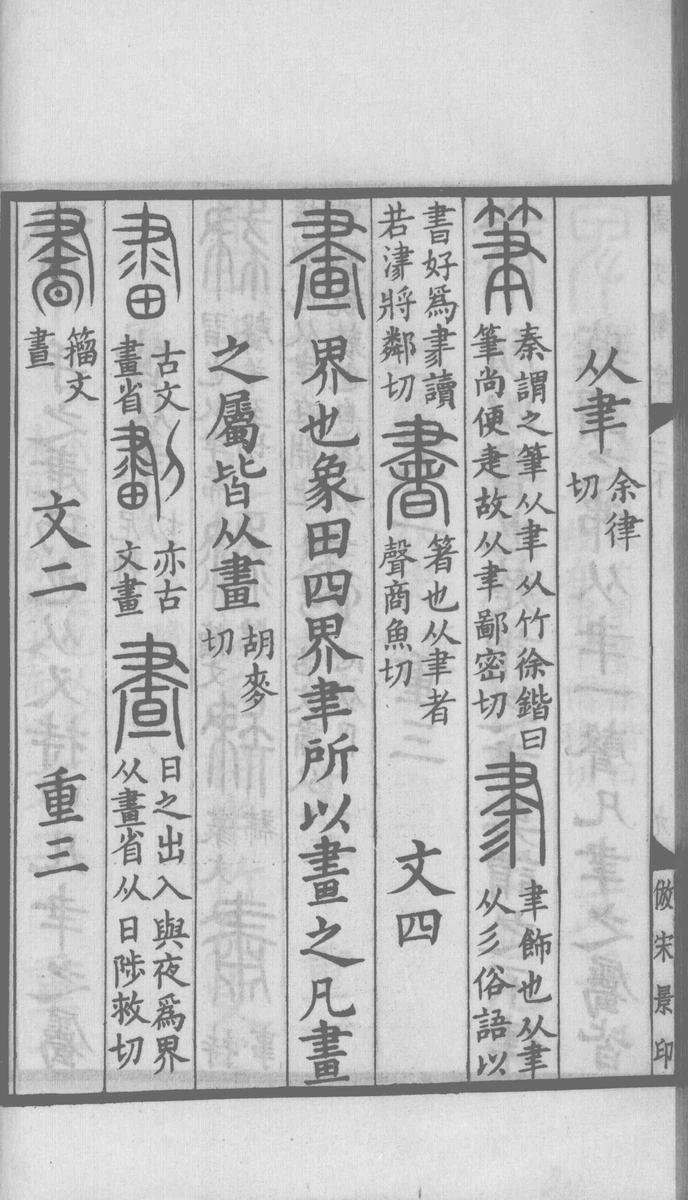 从聿余律切
筆秦謂之筆从聿从竹徐鍇曰筆尚便疌故从聿鄙密切 𦘔聿飾也从聿从彡俗語以
書好爲𦘔讀若津將鄰切 書箸也从聿者聲商魚切 文四
畫界也象田四界聿所以畫之凡畫
之屬皆从畫胡麥切
古文畫省 亦古文畫 晝日之出入與夜爲界从畫省从日陟救切
籒文晝 文二 重三
倣宋景印